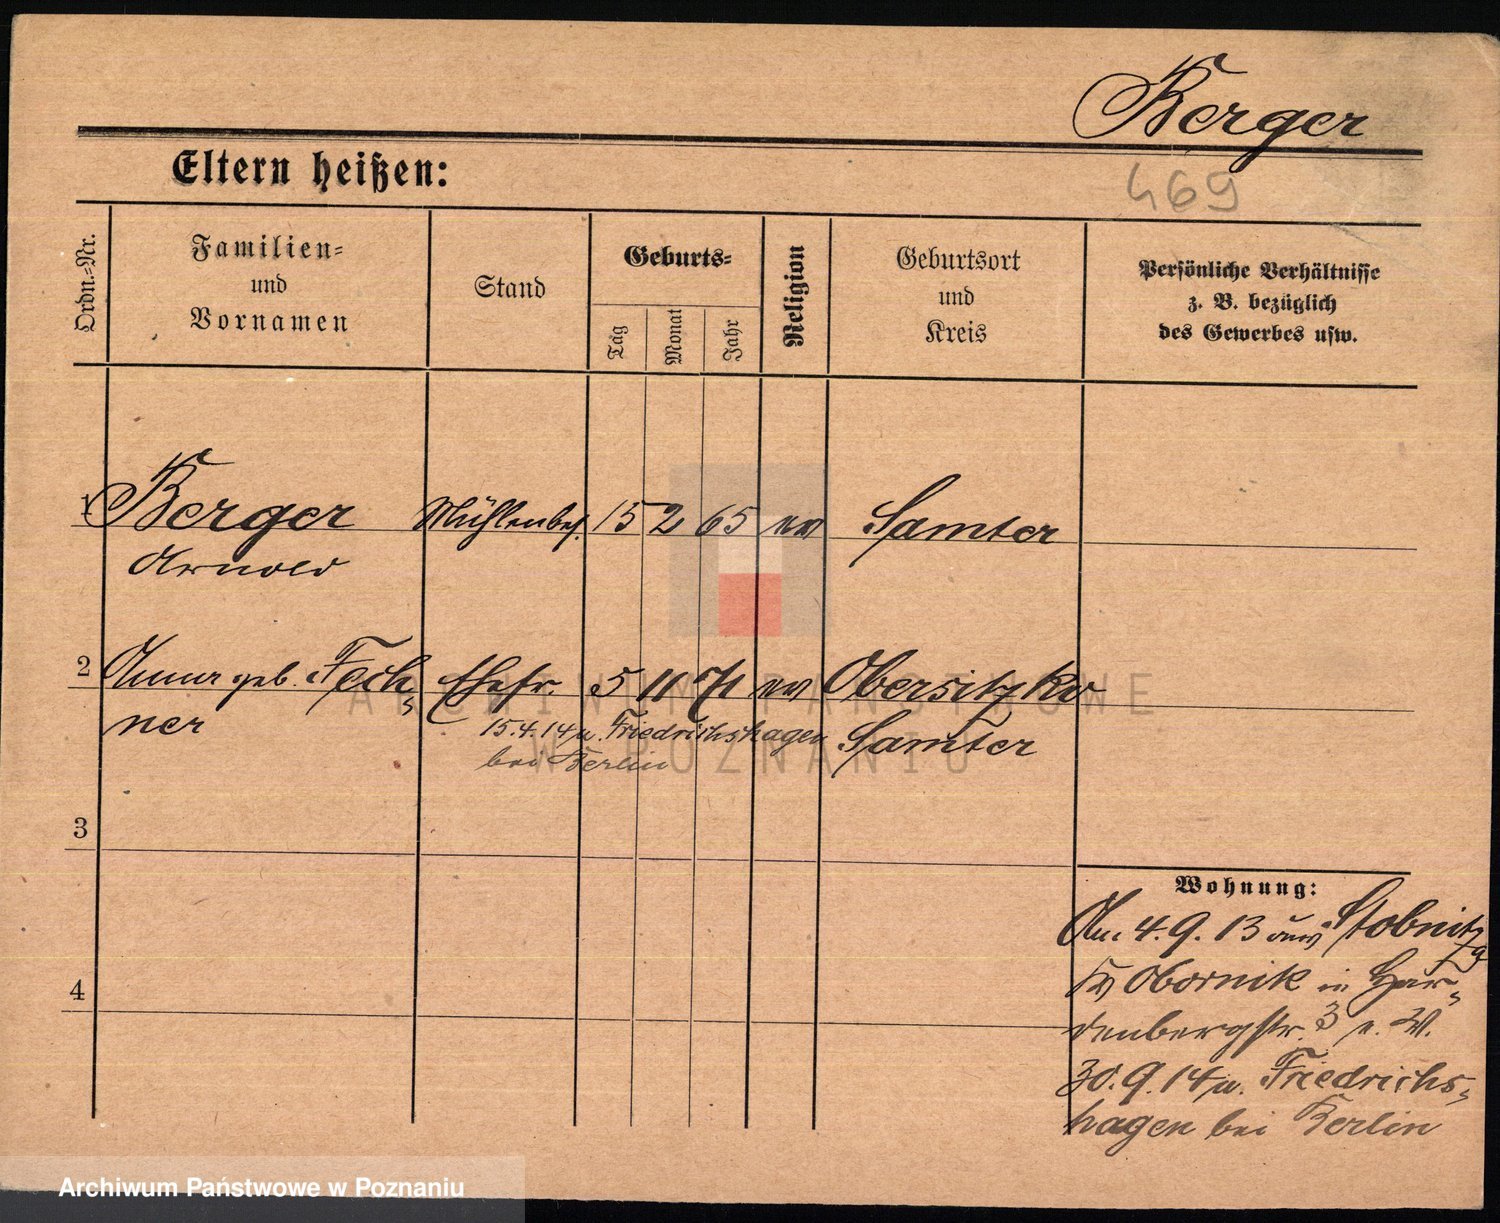 Berger
Eltern heißen:
469
Ordn.-Nr.
Familien-
und
Vornamen
Stand
Geburts-
Tag
Monat
Jahr
Religion
Geburtsort
und
Kreis
Persönliche Verhältnisse
z. B. bezüglich
des Gewerbes usw.
1 Berger Mühlenbes. 15 2 65 ev Samter
Arnold
2 Anna geb. Fech- Ehefr. 5 11 71 ev Obersitzko
ner 15.4.14 n. Friedrichshagen Samter
bei Berlin
3
4
Wohnung:
Am 4.9.13 aus Stobnitz
Kr Obornik in Har-
denbergstr. 3
30.9.14 n. Friedrichs-
hagen bei Berlin
ARCHIWUM PAŃSTWOWE
W POZNANIU
Archiwum Państwowe w Poznaniu